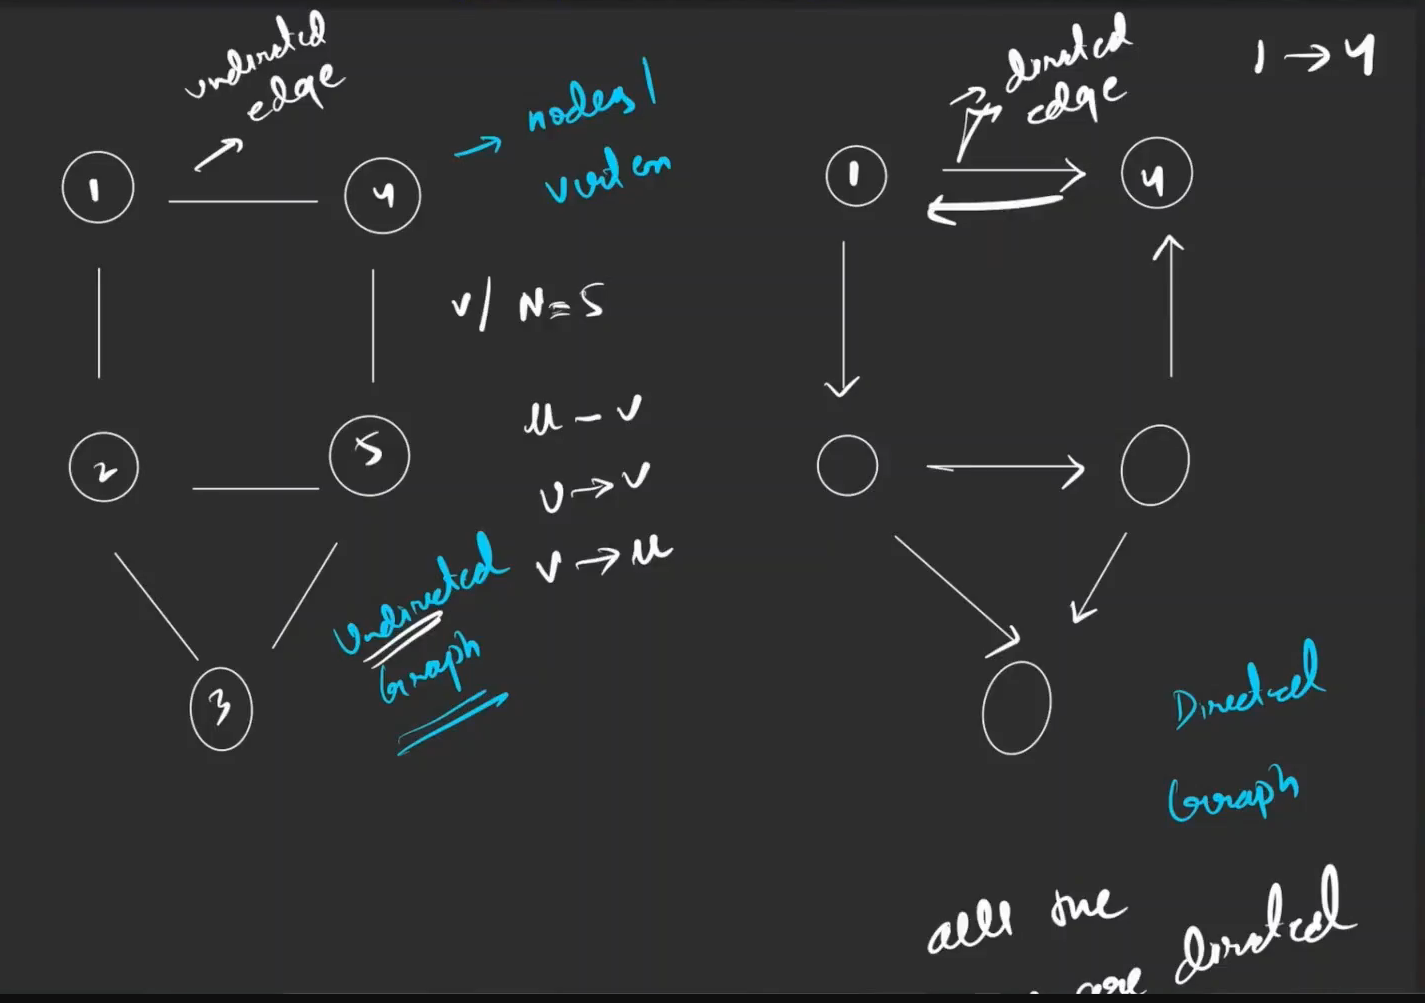 undirected
edge
1
4
→ nodes/
vertex
v/ N=5
2
5
u - v
u → v
v → u
3
Undirected
Graph
directed
edge
1 → 4
1
4
Directed
Graph
all the
are directed